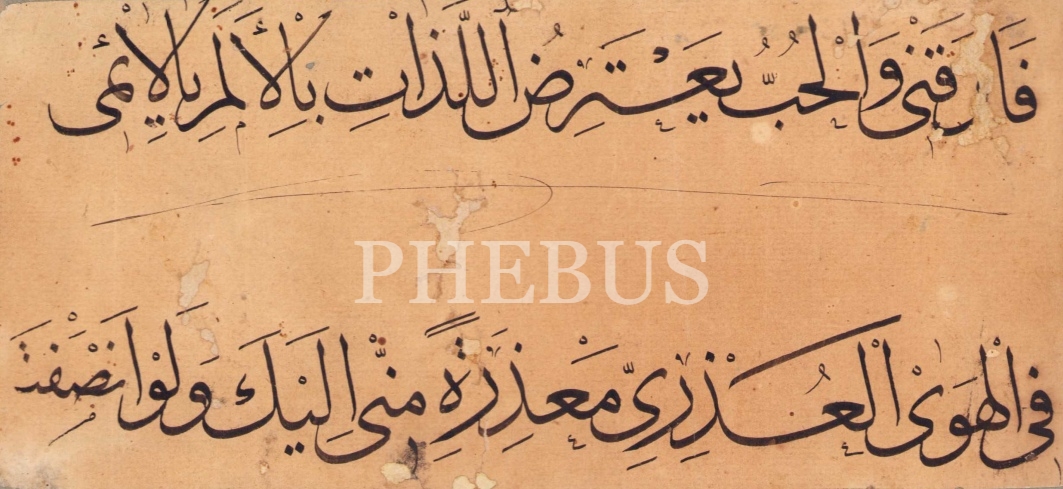 فَارَقَنْى وَالْحُبُّ يَعْتَرِضُ اللَّذَاتِ بْالْأَلَمِ يالاِئمى
PHEBUS
فى الْهَوَىْ الْعُذْرِىِّ مَعْذِرَةً مِنّى اِلَيْكَ وَلَوْ اَنْصَفْتَ